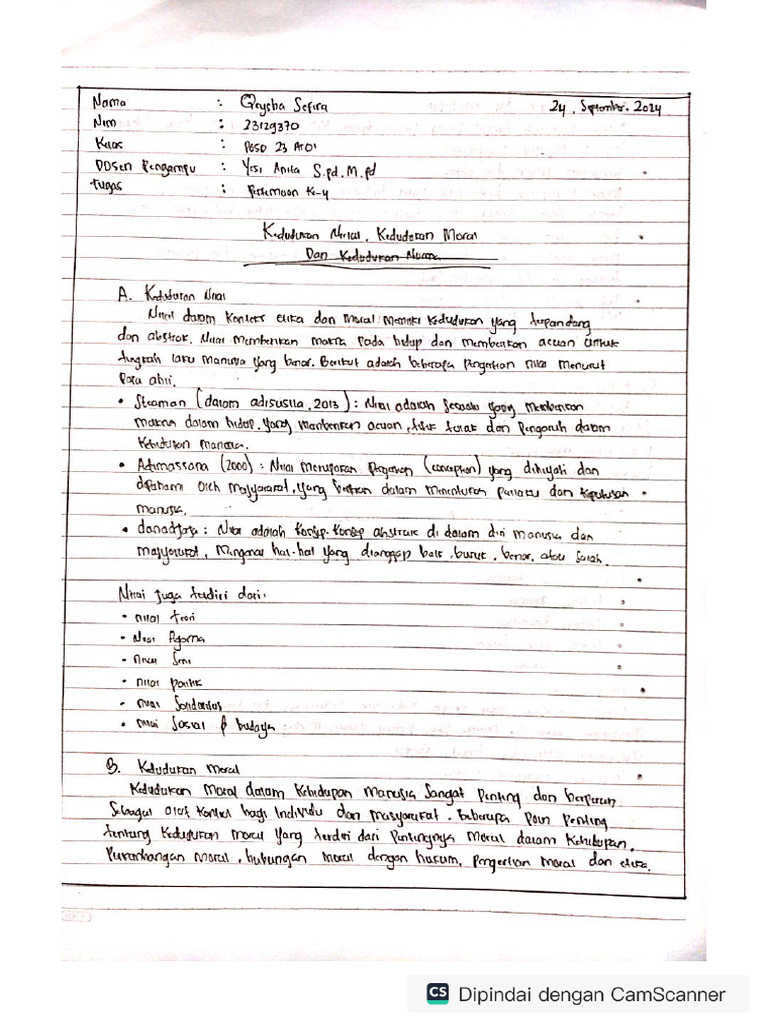 Nama : Qeysha Sefira 24, September. 2024
Nim : 23129370
Kelas : PGSD 23 AT01
Dosen Pengampu : Yesi Anita S.pd. M.pd
tugas : Pertemuan Ke-4
Kedudukan Nilai, Kedudukan Moral
Dan Kedudukan Norma
A. Kedudukan Nilai
Nilai dalam Konteks etika dan Moral Memiliki Kedudukan yang terpandang
dan abstrak. Nilai Memberikan makna pada hidup dan memberikan acuan untuk
tingkah laku manusia yang benar. Berikut adalah beberapa Pengertian nilai menurut
Para ahli.
• Steaman (dalam adisusila, 2013) : Nilai adalah Sesuatu yang Memberikan
makna dalam hidup, yang memberikan acuan, titik tolak dan Pengaruh dalam
Kehidupan manusia.
• Adimassana (2000) : Nilai Merupakan Pengertian (conception) yang dihayati dan
dipahami oleh masyarakat, yang berperan dalam menentukan perilaku dan Keputusan
manusia.
• danadjaja : Nilai adalah Konsep-Konsep abstrak di dalam diri manusia dan
masyarakat, Mengenai hal-hal yang dianggap baik, buruk, benar, atau Salah.
Nilai Juga terdiri dari:
• nilai teori
• Nilai Agama
• Nilai Seni
• nilai politik
• nilai Solidaritas
• nilai Sosial & budaya
B. Kedudukan moral
Kedudukan Moral dalam Kehidupan Manusia Sangat Penting dan berperan
Sebagai alat Kontrol bagi Individu dan masyarakat. beberapa Poin Penting
tentang Kedudukan moral yang terdiri dari Pentingnya Moral dalam Kehidupan,
Perkembangan moral, hubungan moral dengan hukum, Pengertian moral dan etika.
CS Dipindai dengan CamScanner